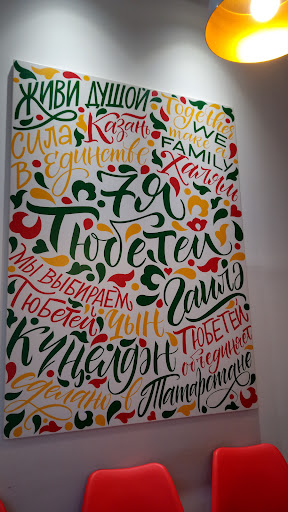 ЖИВИ ДУШОЙ
Together
WE
FAMILY
Казань
СИЛА
В ЕДИНСТВЕ
Халяль
7Я
Тюбетей
МЫ ВЫБИРАЕМ
ТЮБЕТЕЙ
Гаилә
ЧЫН
Күңелдән
ТЮБЕТЕЙ
объединяет
сделано в
Татарстане